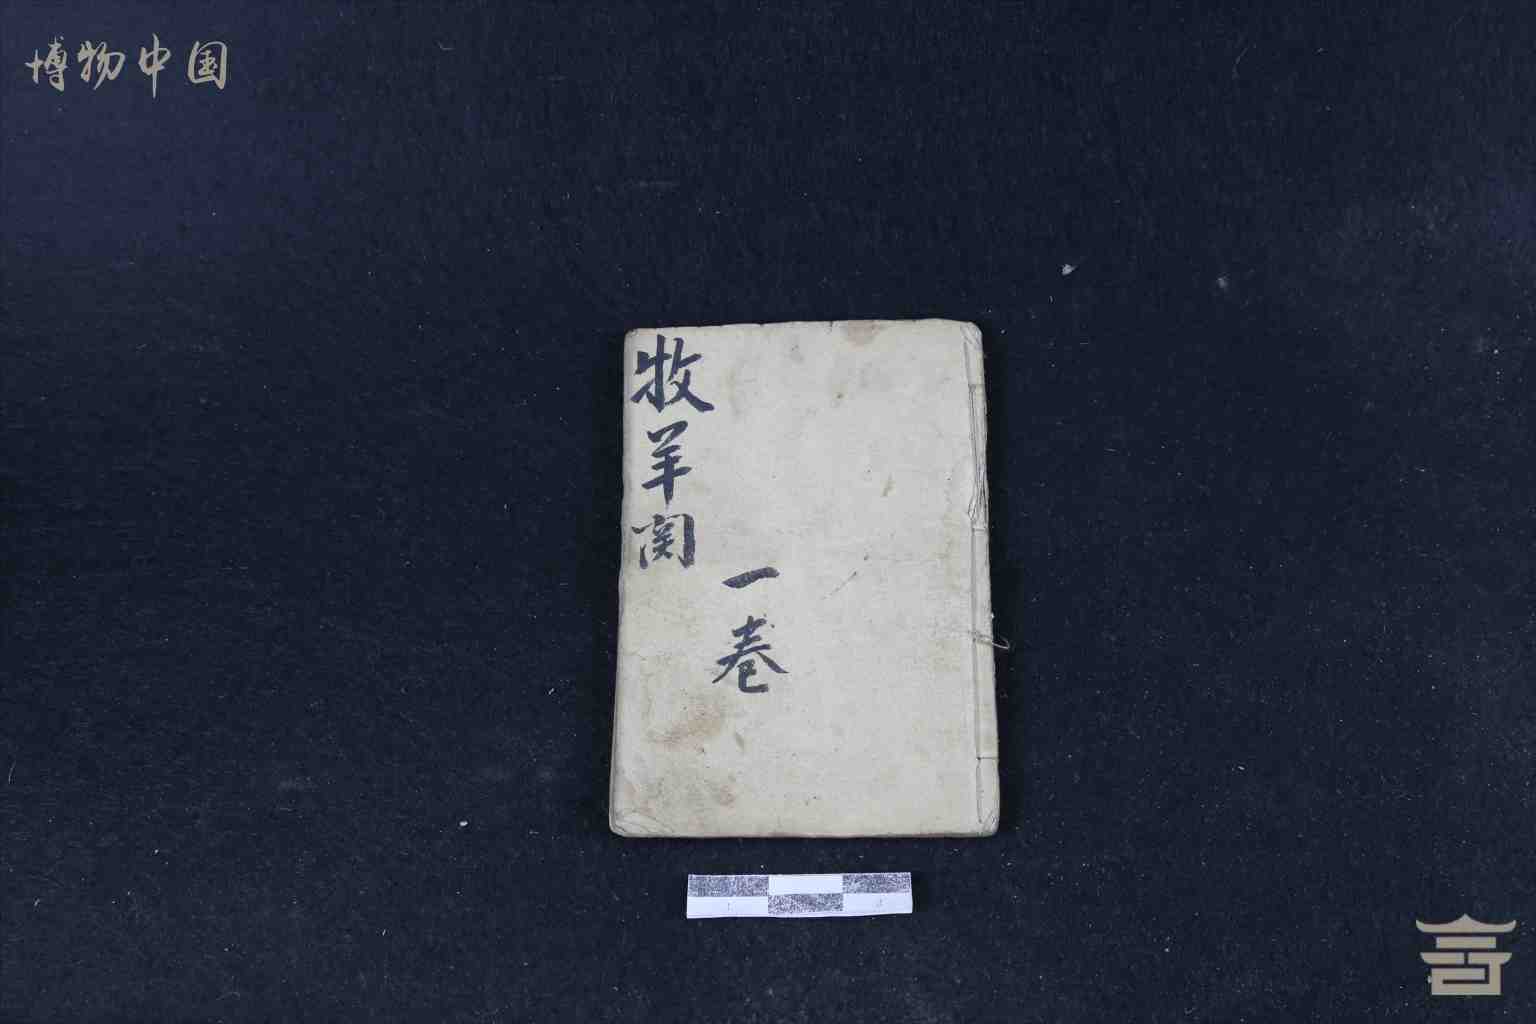 博物中国
牧羊関
一卷